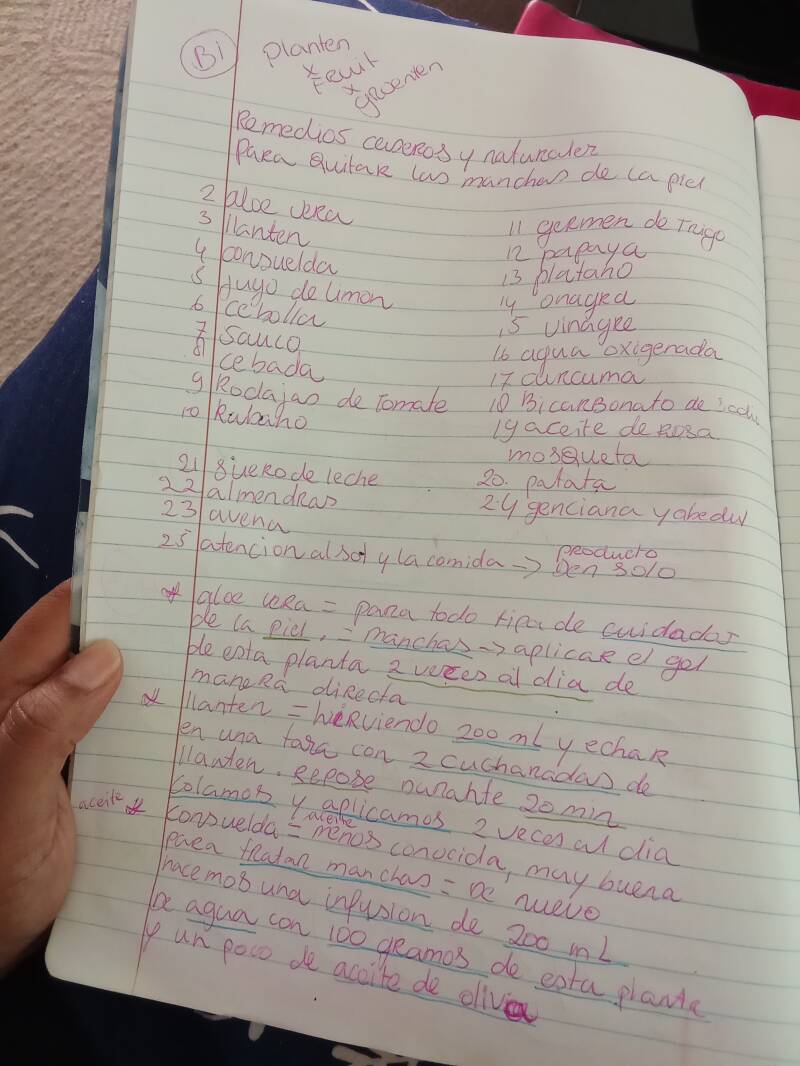 Bi
planten
x Fruit
x groenten
Remedios caseros y naturales
para quitar las manchas de la piel
2 aloe vera
3 llanten
4 consuelda
5 juyo de limon
6 cebolla
7 sauco
8 cebada
9 Rodajas de Tomate
10 Rabano
11 germen de Trigo
12 papaya
13 platano
14 onagra
15 vinagre
16 agua oxigenada
17 curcuma
18 Bicarbonato de
19 aceite de Rosa
mosqueta
20. patata
21 suero de leche
22 almendras
23 avena
24 genciana y abedul
25 atencion al sol y la comida -> producto
Den solo
* aloe vera = para todo tipo de cuidados
de la piel. = manchas -> aplicar el gel
de esta planta 2 veces al dia de
manera directa
* llanten = hirviendo 200 mL y echar
en una taza con 2 cucharadas de
llanten. Repose durante 20 min
colamos y aplicamos 2 veces al dia
aceite * consuelda = aceite menos conocida, muy buena
para tratar manchas = de nuevo
hacemos una infusion de 200 mL
de agua con 100 gramos de esta planta
y un poco de aceite de oliva